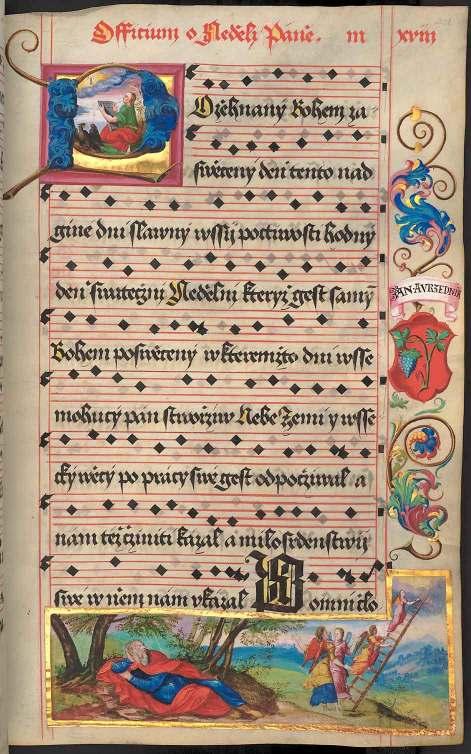 Officium o Neděli Páně. m xviii
Požehnaný Bohem za
swěcený den tento nad
gine dni slawny wssij poctiwosti hodný
den swatečni Nedělni kteryž gest samý
Bohem poswěcený w kteremžto dni wsse
mohucý pan stwořiw Nebe Zemi y wsse
cky wěcy po pracy swe gest odpočiwal a
nam též činiti kázal a milosrdenstwij
swe w něm nam vkázal
IAN AVRZEDNIK